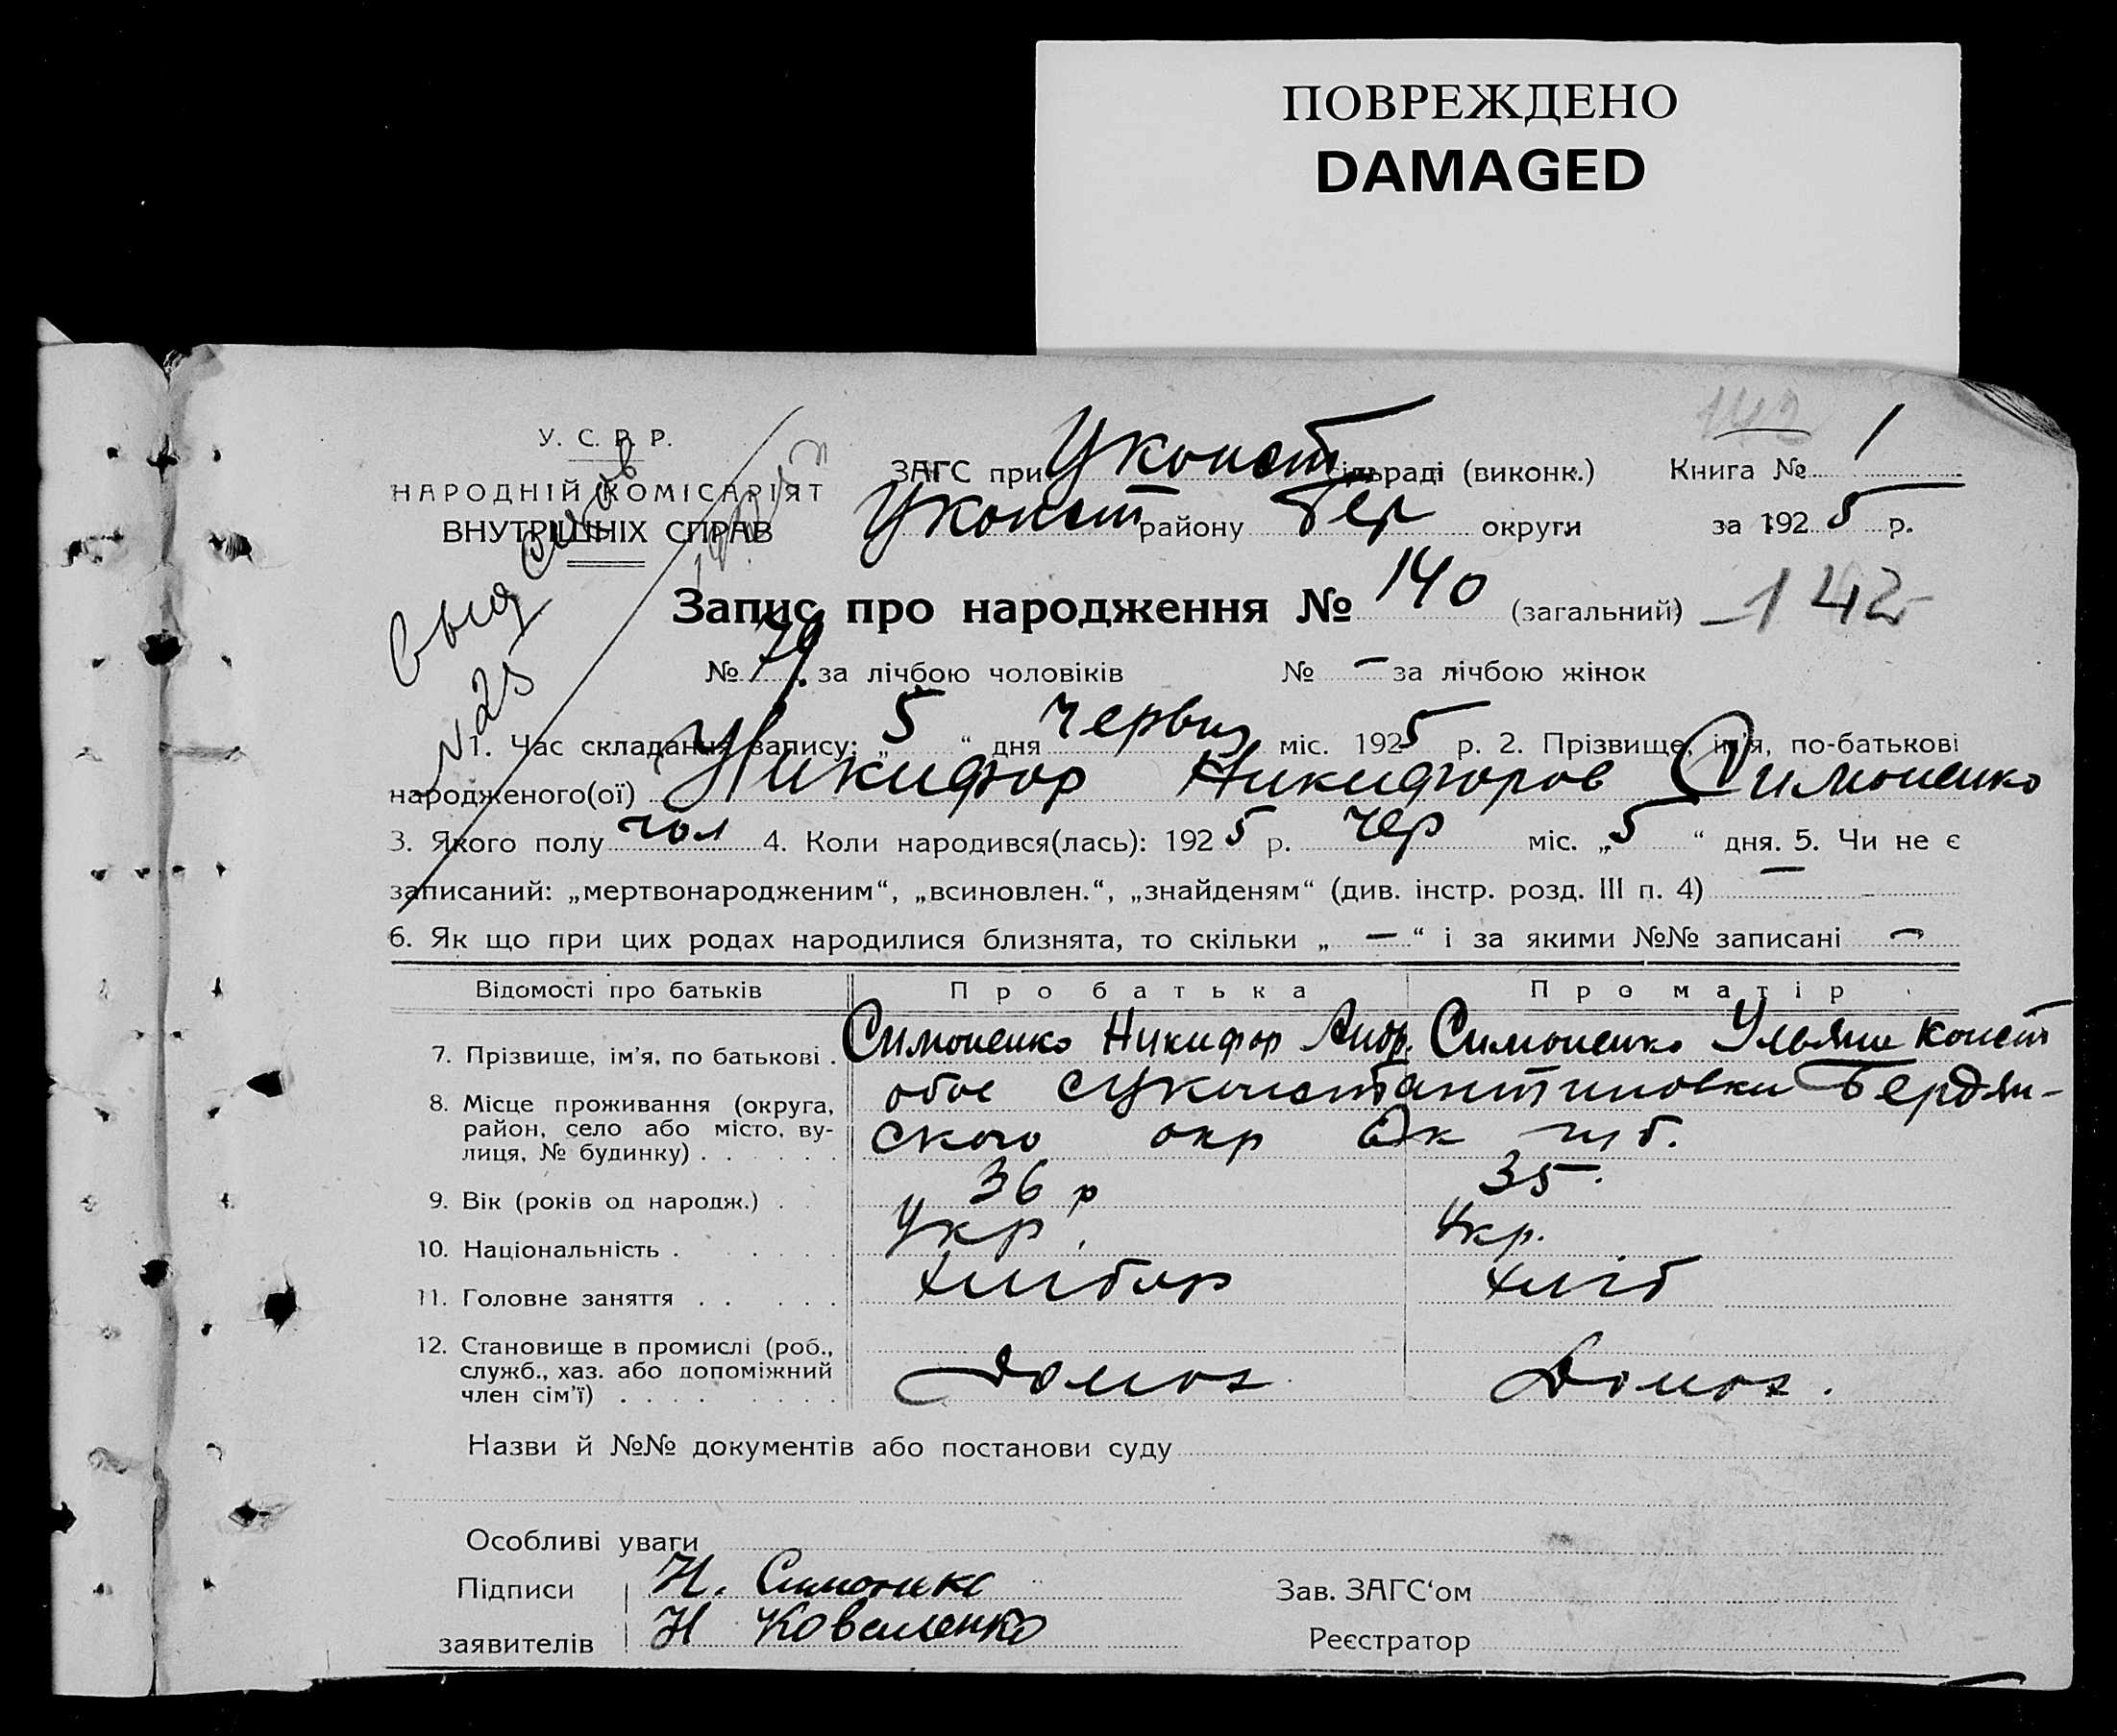 ПОВРЕЖДЕНО
DAMAGED
142
У. С. Р. Р.
НАРОДНІЙ КОМІСАРІЯТ
ВНУТРІШНІХ СПРАВ
ЗАГС при Уконст сільраді (виконк.) Книга № 1
Уконст району Бер округи за 1925 р.
Запис про народження № 140 (загальний) 142
№ 79 за лічбою чоловіків № — за лічбою жінок
№ 25
1. Час складання запису: „5“ дня Червня міс. 1925 р. 2. Прізвище, ім'я, по-батькові
народженого(ої) Никифор Никифоров Симоненко
3. Якого полу чол 4. Коли народився(лась): 1925 р. чер міс. „5“ дня. 5. Чи не є
записаний: „мертвонародженим“, „всиновлен.“, „знайденям“ (див. інстр. розд. III п. 4) —
6. Як що при цих родах народилися близнята, то скільки „—“ і за якими №№ записані —
Відомості про батьків Про батька Про матір
7. Прізвище, ім'я, по батькові . Симоненко Никифор Андр. Симоненко Ульяна Конст
8. Місце проживання (округа, район, село або місто, вулиця, № будинку) . обое с Уконстантиновки Бердян-
ского окр
9. Вік (років од народж.) . 36 р 35.
10. Національність . Укр. Укр.
11. Головне заняття . . Хлібор Хліб
12. Становище в промислі (роб., служб., хаз. або допоміжний член сім'ї) . Домог Домог.
Назви й №№ документів або постанови суду
Особливі уваги
Підписи Н. Симоненко Зав. ЗАГС'ом
заявителів Н Коваленко Реєстратор